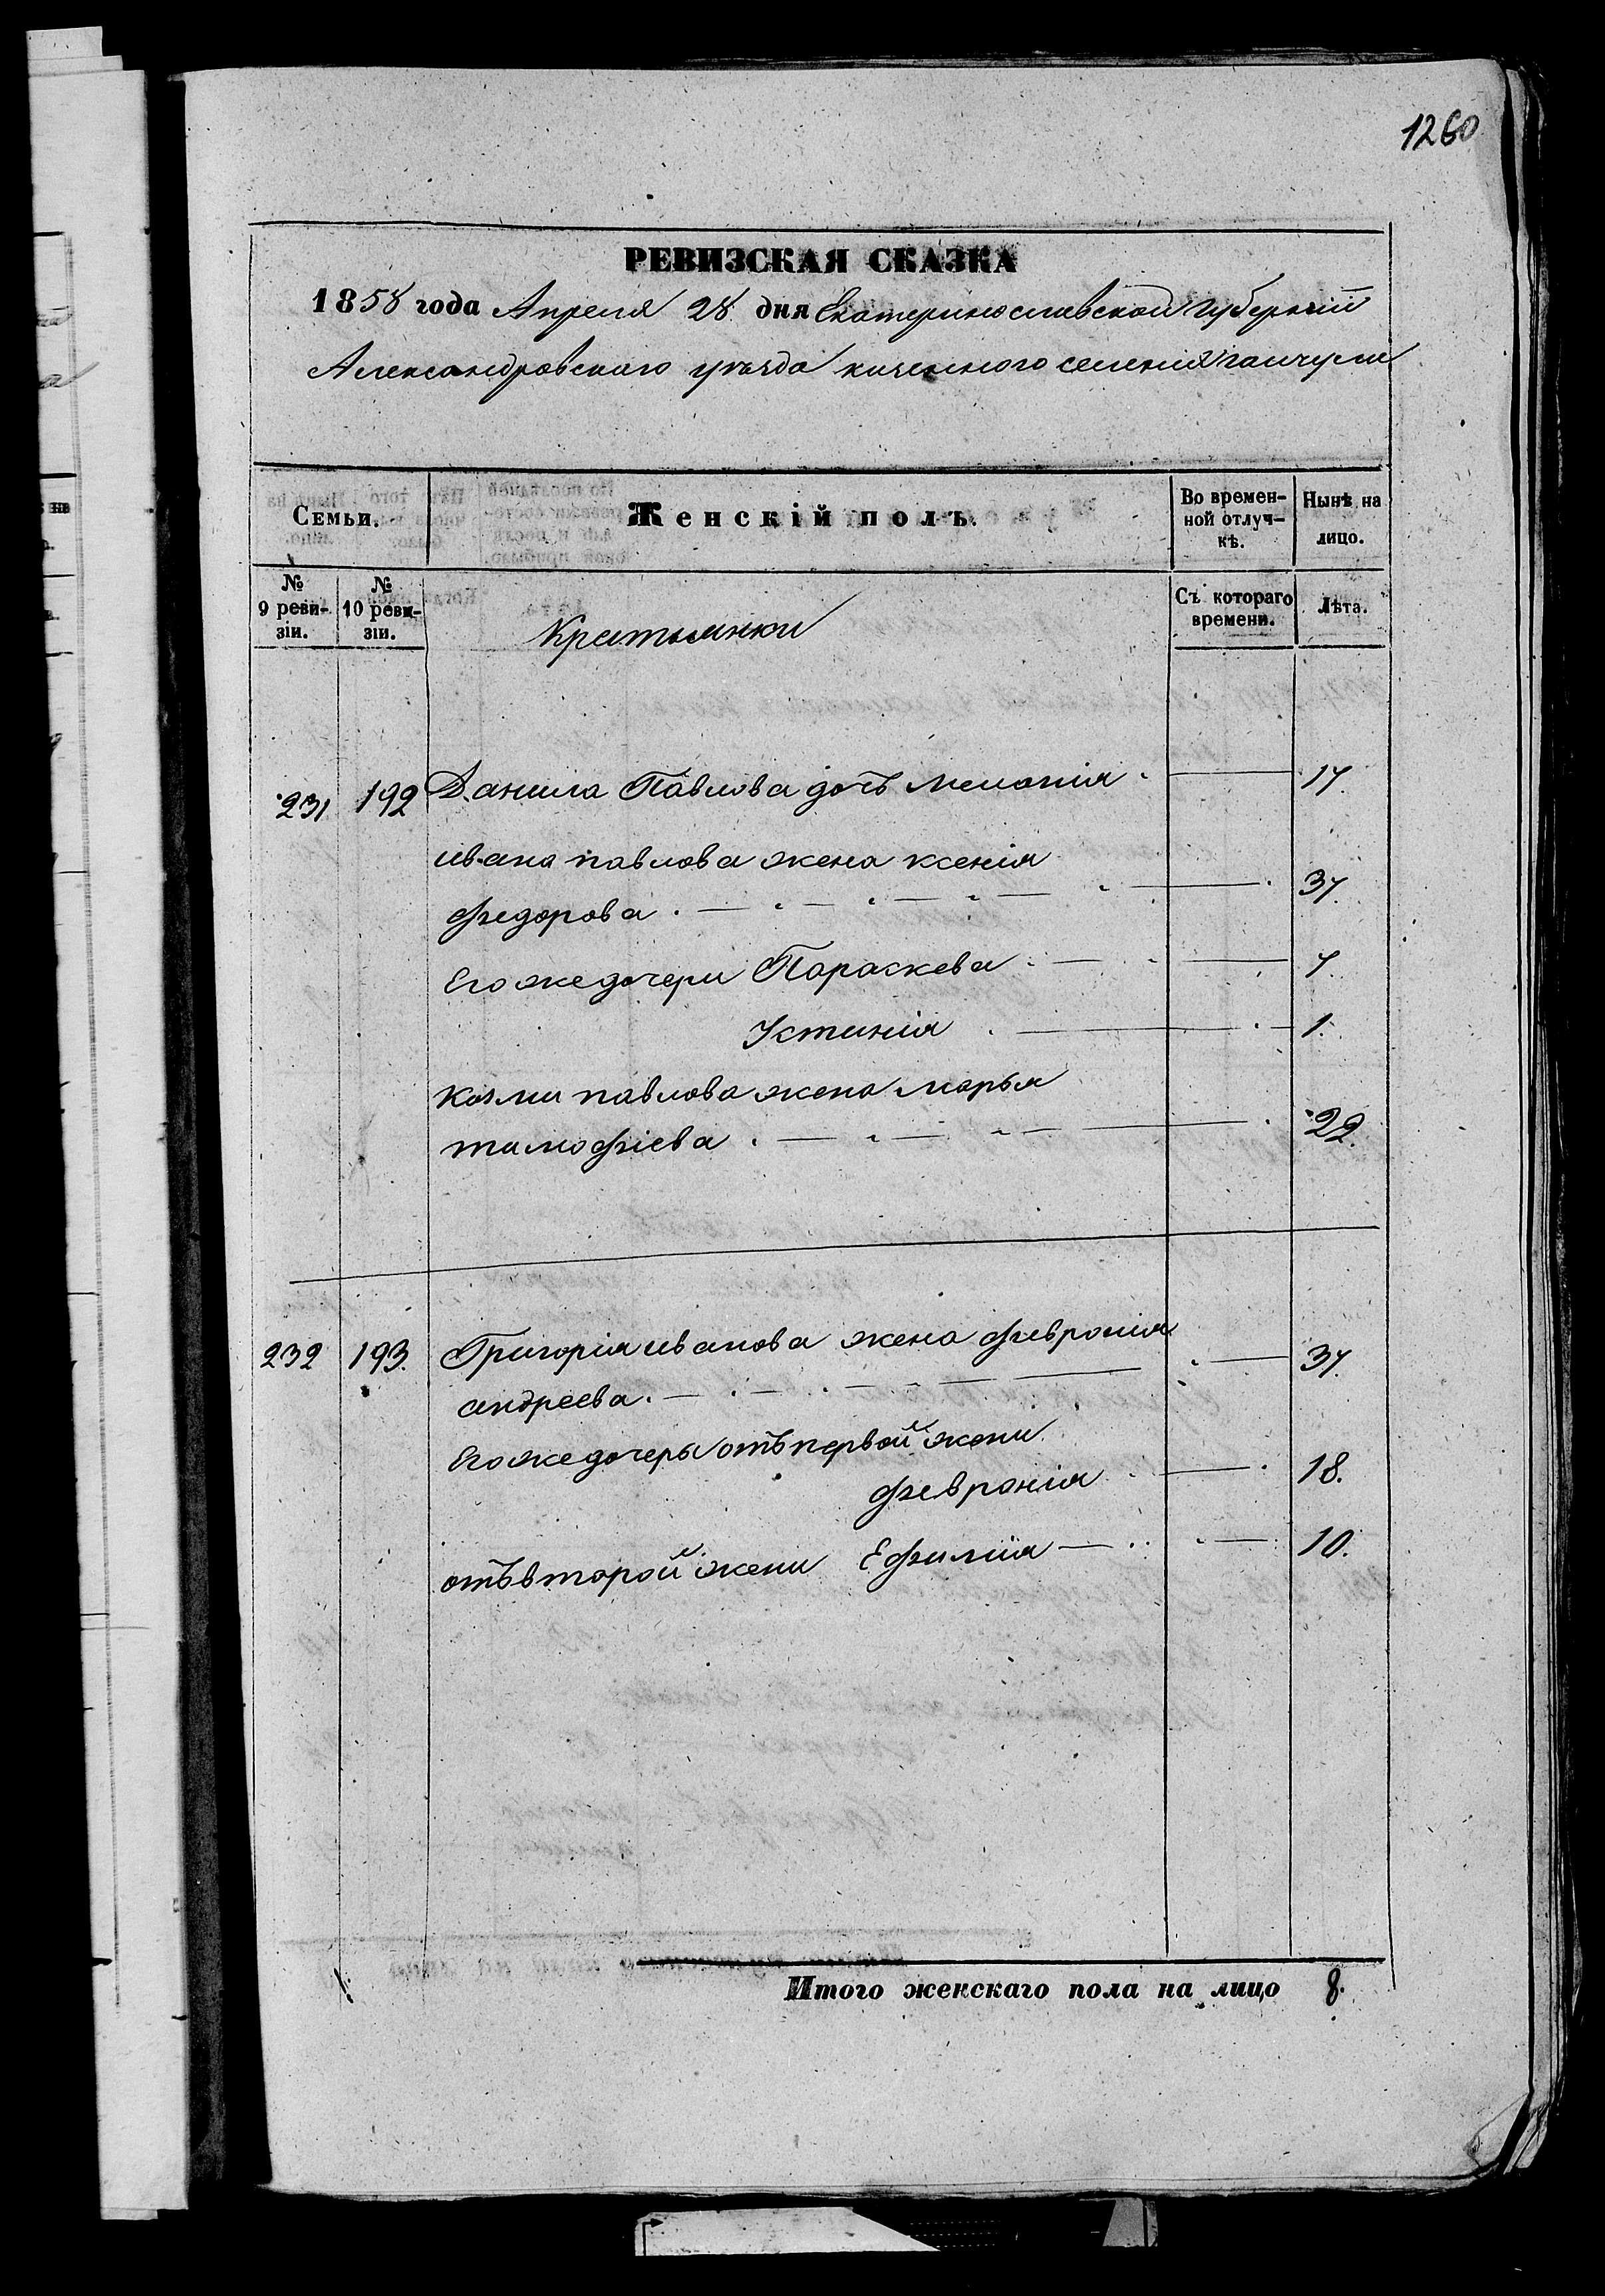 1260
РЕВИЗСКАЯ СКАЗКА
1858 года Апреля 28 дня Екатеринославской губерніи
Александровскаго уѣзда казенного селенія гайчула
Семьи.
Женскій полъ.
Во времен-
ной отлуч-
кѣ.
Нынѣ на
лицо.
№
9 реви-
зіи.
№
10 реви-
зіи.
Крестьянки
Съ котораго
времени.
Лѣта.
231 192 Данила Павлова дочь Меланія 17.
ивана павлова жена ксенія
федорова. 37.
Его же дочери Параскева 7.
Устинія 1.
козми павлова жена марья
тимофіева 22.
232 193. Григорія иванова жена феврония 37.
андреева.
Его же дочеры отъ первой жени
февронія 18.
отъ второй жени Ефимія 10.
Итого женскаго пола на лицо 8.